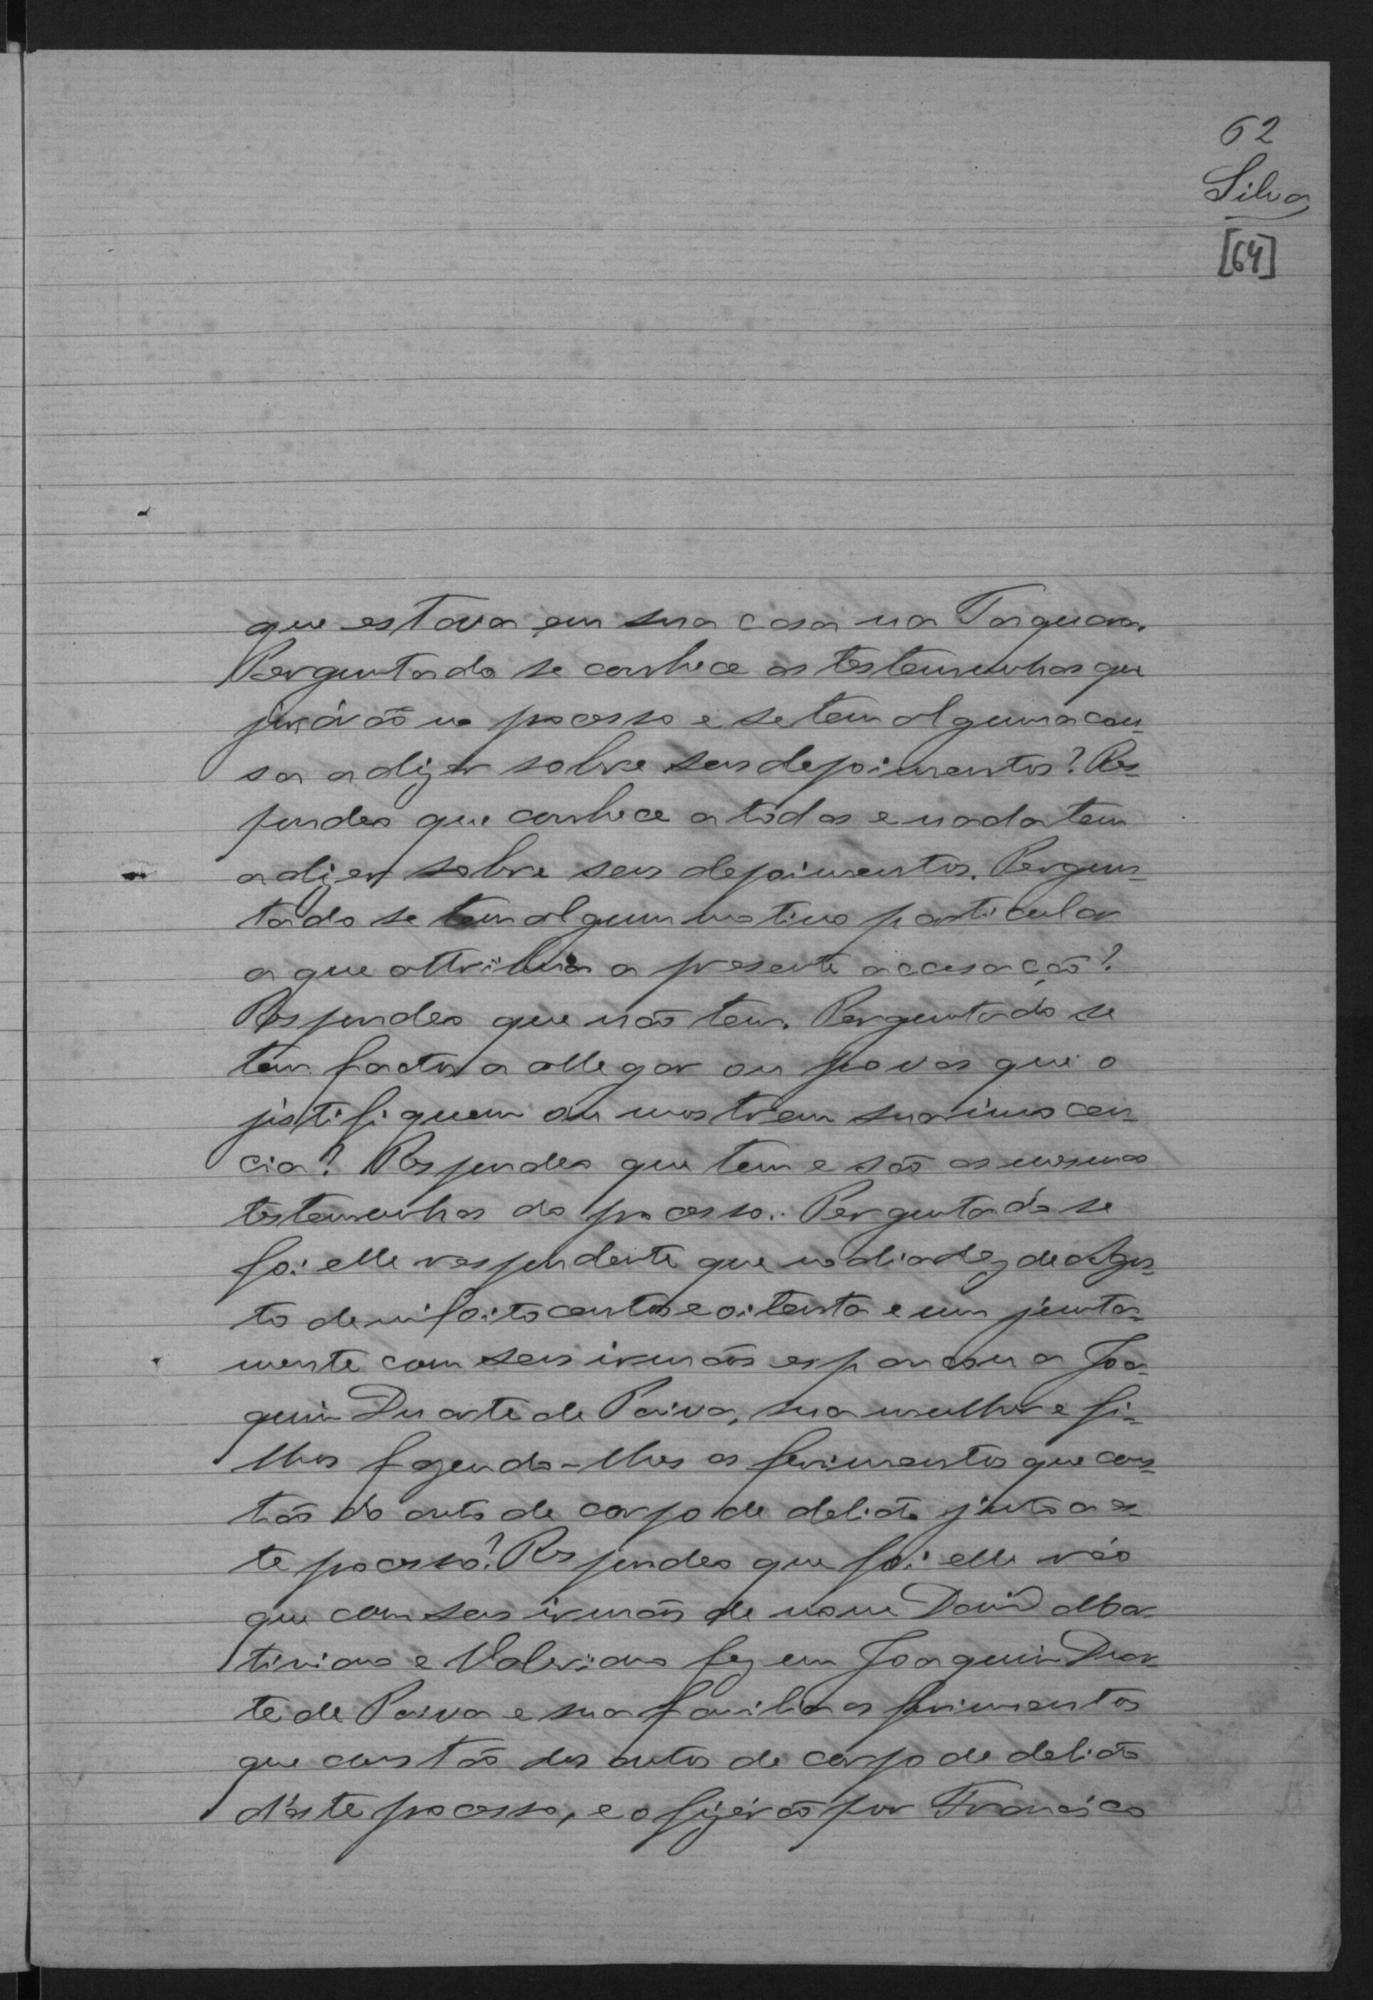 62
Silva
[64]
que estava em sua casa na Taquara.
Perguntado se conhece as testemunhas que
jurárão no pocesso e se tem alguma cou-
sa a dizer sobre seus depoimentos? Res-
pondeo que conhece a todas e nada tem
a dizer sobre seus depoimentos. Pergun-
tado se tem algum motivo particular
a que attribua a presente accusação?
Respondeo que não tem. Perguntado se
tem factos a allegar ou provas que o
justifiquem ou mostrem sua innocen-
cia? Respondeo que tem e são as mesmas
testemunhas do processo. Perguntado se
foi elle respondente que no dia dez de Agos-
to de mil oito centos e oitenta e um junta-
mente com seus irmãos espancou a Joa-
quim Duarte de Paiva, sua mulher e fi-
lhos fazendo-lhes os ferimentos que cons-
tão do auto de corpo de delicto junto a es-
te pocesso? Respondeo que foi elle réo
que com seus irmãos de nome David
tiniano e Valeriano fez em Joaquim Duar-
te de Paiva e sua familia os ferimentos
que constão dos autos de corpo de delicto
d'este pocesso, e o fizérão por Francisco